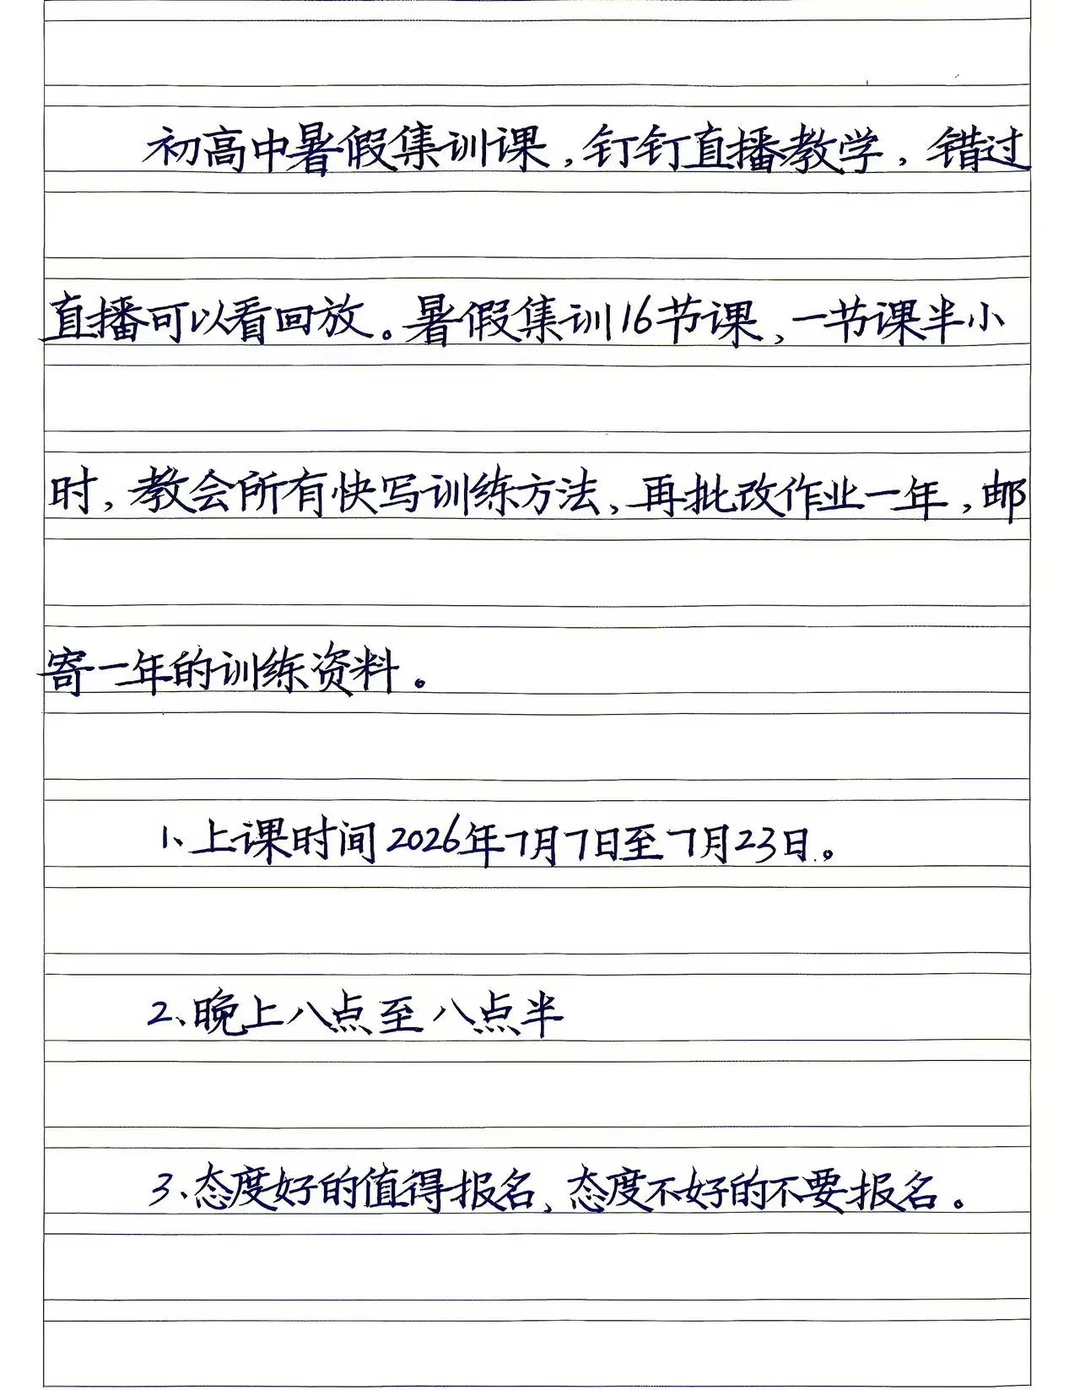 初高中暑假集训课，钉钉直播教学，错过
直播可以看回放。暑假集训16节课，一节课半小
时，教会所有快写训练方法，再批改作业一年，邮
寄一年的训练资料。
1、上课时间2026年7月7日至7月23日。
2、晚上八点至八点半
3、态度好的值得报名，态度不好的不要报名。